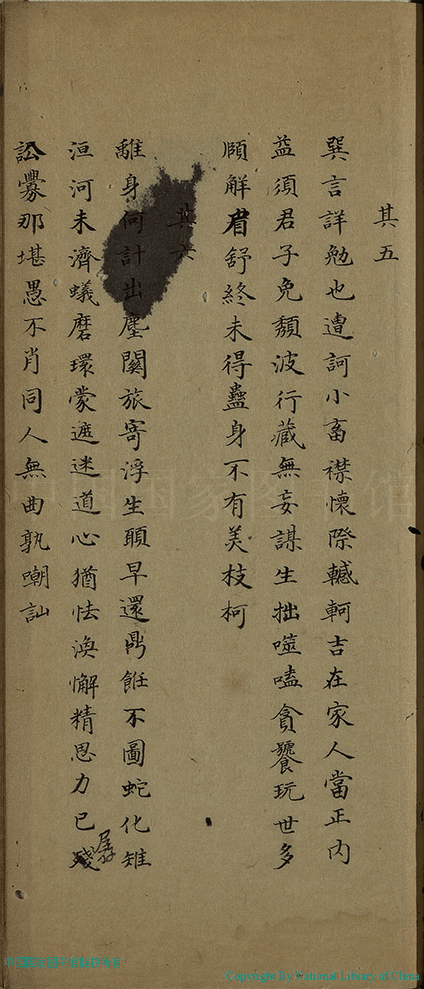 其五
巽言詳勉也遭訶小畜襟懷際轗軻吉在家人當正内
益須君子免頽波行藏無妄謀生拙噬嗑貪饕玩世多
頤解眉舒終未得蠱身不有美枝柯
其六
離身何計出塵關旅寄浮生頭早還鼎飪不圖蛇化雉
洹河未濟蟻磨環蒙遮迷道心猶怯渙懈精思力已殘
孱
訟爨那堪愚不肖同人無曲孰嘲訕
中国国家图书馆
Copyright By National Library of China